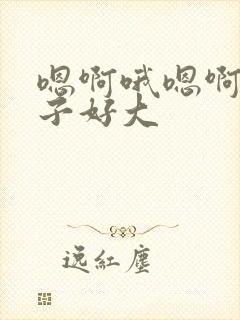 嗯啊哦嗯啊
子好大
逸红尘